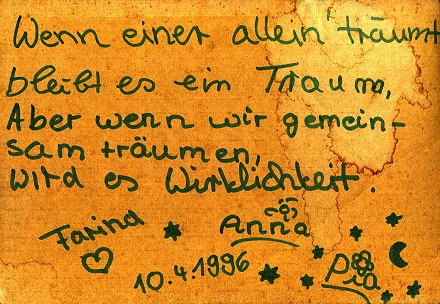 Wenn einer allein träumt
bleibt es ein Traum,
Aber wenn wir gemein-
sam träumen,
wird es Wirklichkeit.
Farina
Anna
10.4.1996
Pia